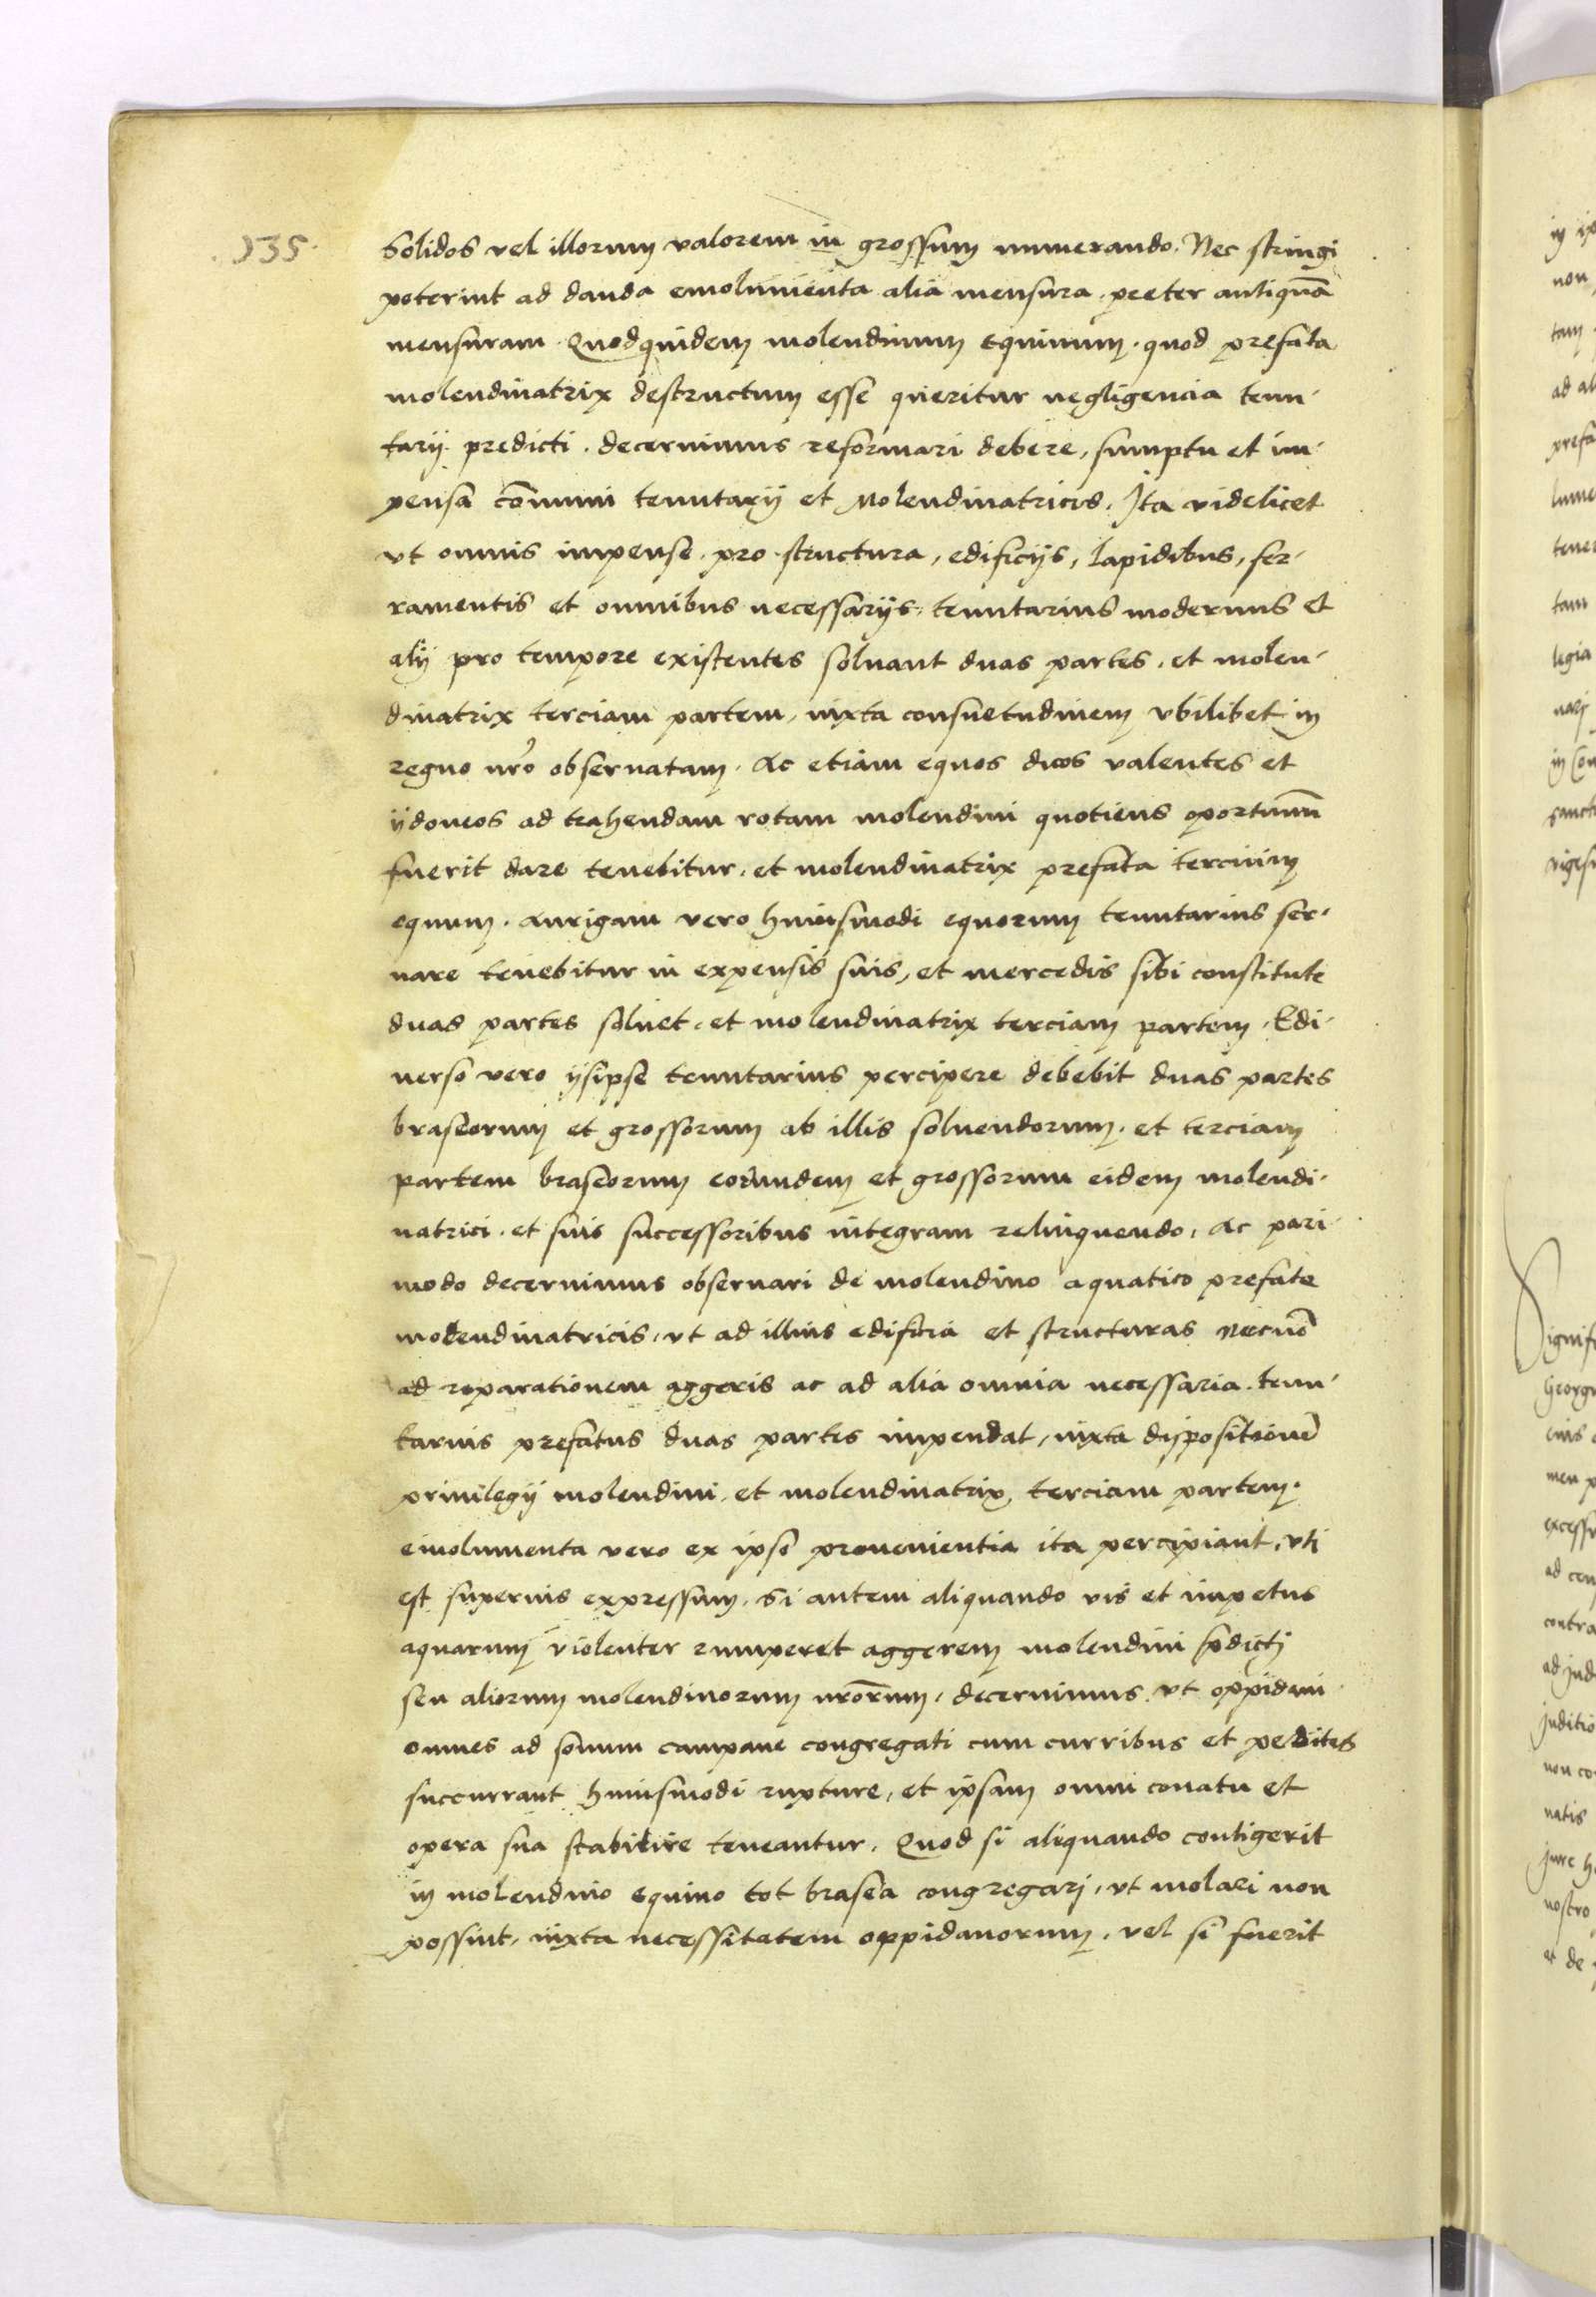 135.
Solidos vel illorum valorem in grossum numerando. Nec stringi
poterint ad danda emolumenta alia mensura. preter antiquā
mensuram. Quodquidem molendinum equinum. quod prefata
molendinatrix destructum esse queritur negligencia tenu-
tarij predicti. decernimus reformari debere, sumptu et im-
pensa cōmuni tenutarij et Molendinatricis. Ita videlicet
vt omnis impense. pro structura, edificijs, lapidibus, fer-
ramentis et omnibus necessarijs, tenutarius modernus et
alij pro tempore existentes soluant duas partes, et molen-
dinatrix terciam partem, iuxta consuetudinem vbilibet in
regno nrō obseruatam. Ac etiam equos duos valentes et
ijdoneos ad trahendam rotam molendini quotiens oportunū
fuerit dare tenebitur, et molendinatrix prefata tercium
equum. Aurigam vero huiusmodi equorum tenutarius ser-
uare tenebitur in expensis suis, et mercedis sibi constitute
duas partes soluet. et molendinatrix terciam partem. Edi-
uerso vero ijsipse tenutarius percipere debebit duas partes
braseorum et grossorum ab illis soluendorum. et terciam
partem braseorum eorundem et grossorum eidem molendi-
natrici. et suis successoribus integram relinquendo, Ac pari
modo decernimus obseruari de molendino aquatico prefate
molendinatricis, vt ad illius edificia et structuras necnō
ad reparationem aggeris ac ad alia omnia necessaria. tenu-
tarius prefatus duas partes impendat, iuxta dispositionē
priuilegij molendini, et molendinatrix terciam partem.
emolumenta vero ex ipso prouenientia ita percipiant, vti
est superius expressum. Si autem aliquando vis et impetus
aquarum violenter rumperet aggerem molendini pdicti
seu aliorum molendinorum nrōrum, decernimus vt oppidani
omnes ad sonum campane congregati cum curribus et pedites
succurrant huiusmodi rupture, et ipsam omni conatu et
opera sua stabilire teneantur. Quod si aliquando contigerit
in molendino equino tot brasea congregari, vt molari non
possint, iuxta necessitatem oppidanorum, vel si fuerit